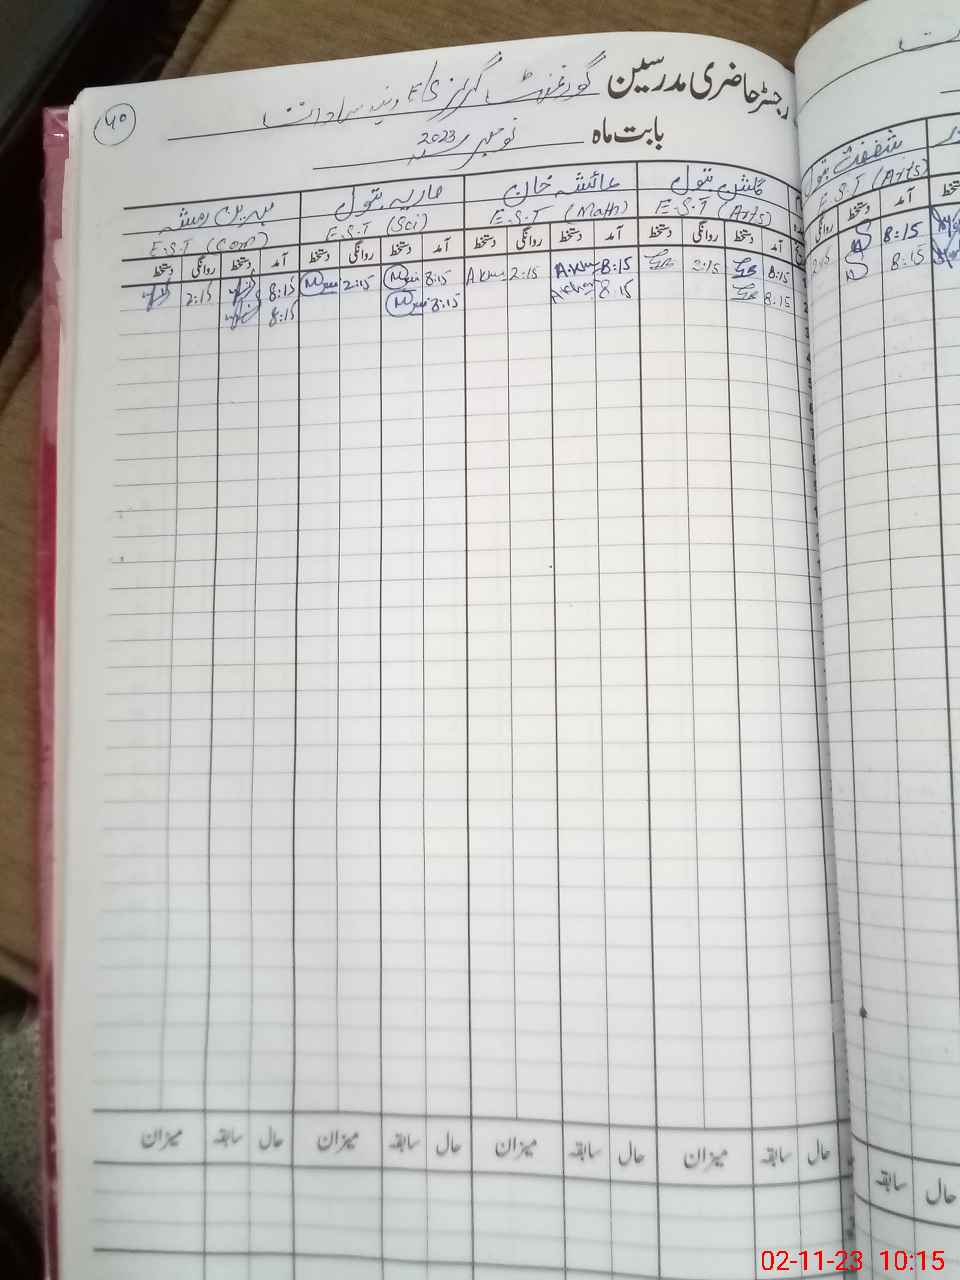 ۶۰
رجسٹر حاضری مدرسین گورنمنٹ گرلز E/S
بابت ماہ نومبر 2023
گلشن بتول عائشہ خان ماریہ بتول
E.S.T (Arts) E.S.T (Math) E.S.T (Sci) E.S.T (Com)
آمد دستخط روانگی دستخط آمد دستخط روانگی دستخط آمد دستخط روانگی دستخط آمد دستخط روانگی دستخط
8:15 2:15 8:15 A.Khan 2:15 A.Khan 8:15 2:15 8:15 2:15
8:15 8:15 A.Khan 8:15 8:15
حال سابقہ میزان حال سابقہ میزان حال سابقہ میزان حال سابقہ میزان
شفقت بتول
E.S.T (Arts)
آمد دستخط روانگی
8:15 2:15
8:15
حال سابقہ
02-11-23 10:15